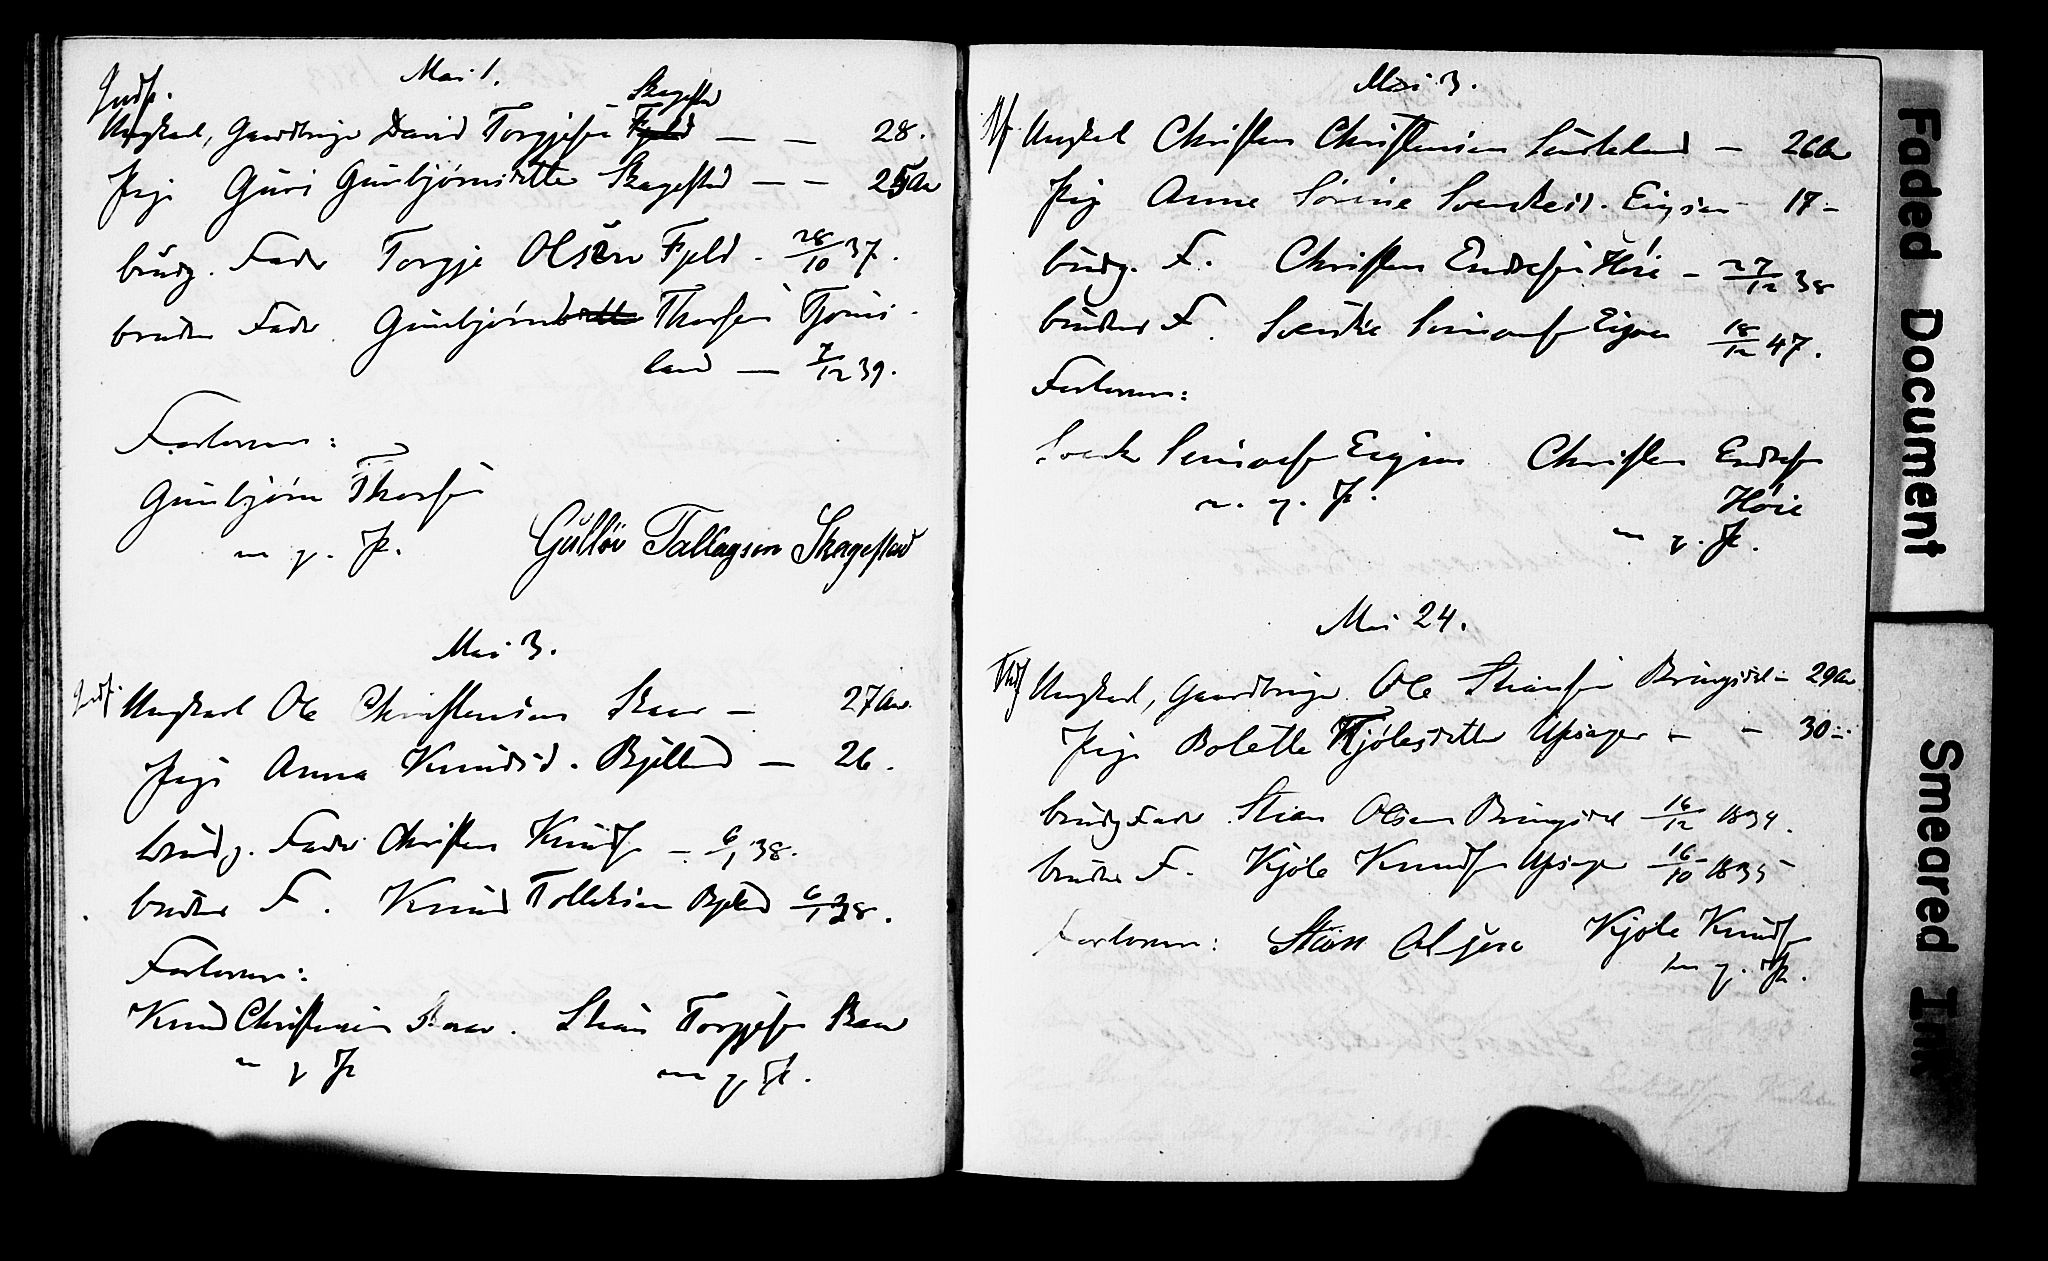 Indf.
Mai 1.
Skagestad
Ungkarl, Gaardbruger David Torgjesen Fjeld — — 28.
Pige Guri Gunbjørnsdatter Skagestad — — 25 Aar
brudg. Fader Torgje Olsen Fjeld. 28/10 37.
brudens Fader Gunbjørn Thorsen Tjoms-
land — 7/12 39.
Forlovere:
Gunbjørn Thorsen
m. p. P.
Gulløv Tallagsen Skagestad
Mai 3.
Indf. Ungkarl Ole Christensen Skaar — 27 Aar
Pige Anna Knudsd. Bjelland — 26.
brudg. Fader Christen Knudsen — 6/1 38.
brudens F. Knud Tollaksen Bjelland 6/1 38.
Forlovere:
Knud Christensen Skaar. Stian Torgjesen Skaar
m p P m p P.
Mai 3.
Ungkarl Christen Christensen — 26 Aar
Pige Anne Sørine Svendsd. Eigsaa — 17 —
brudg. F. Christen Endresen Høie — 27/12 38
brudens F. Simonsen Eigsaa 18/12 47.
Forlovere:
Simonsen Eigsaa Christen Endresen
m. p. P. Høie
m p. P.
Mai 24.
Indf Ungkarl, Gaardbruger Ole Stiansen Bringsdal — 29 Aar
Pige Bolette Kjølesdatter Upsager — — 30 —
brudg Fader Stian Olsen Bringsdal 16/12 1834.
brudens F. Kjøle Knudsen Upsager 16/10 1835
Forlovere: Stian Olsen Kjøle Knudsen
m p. P.